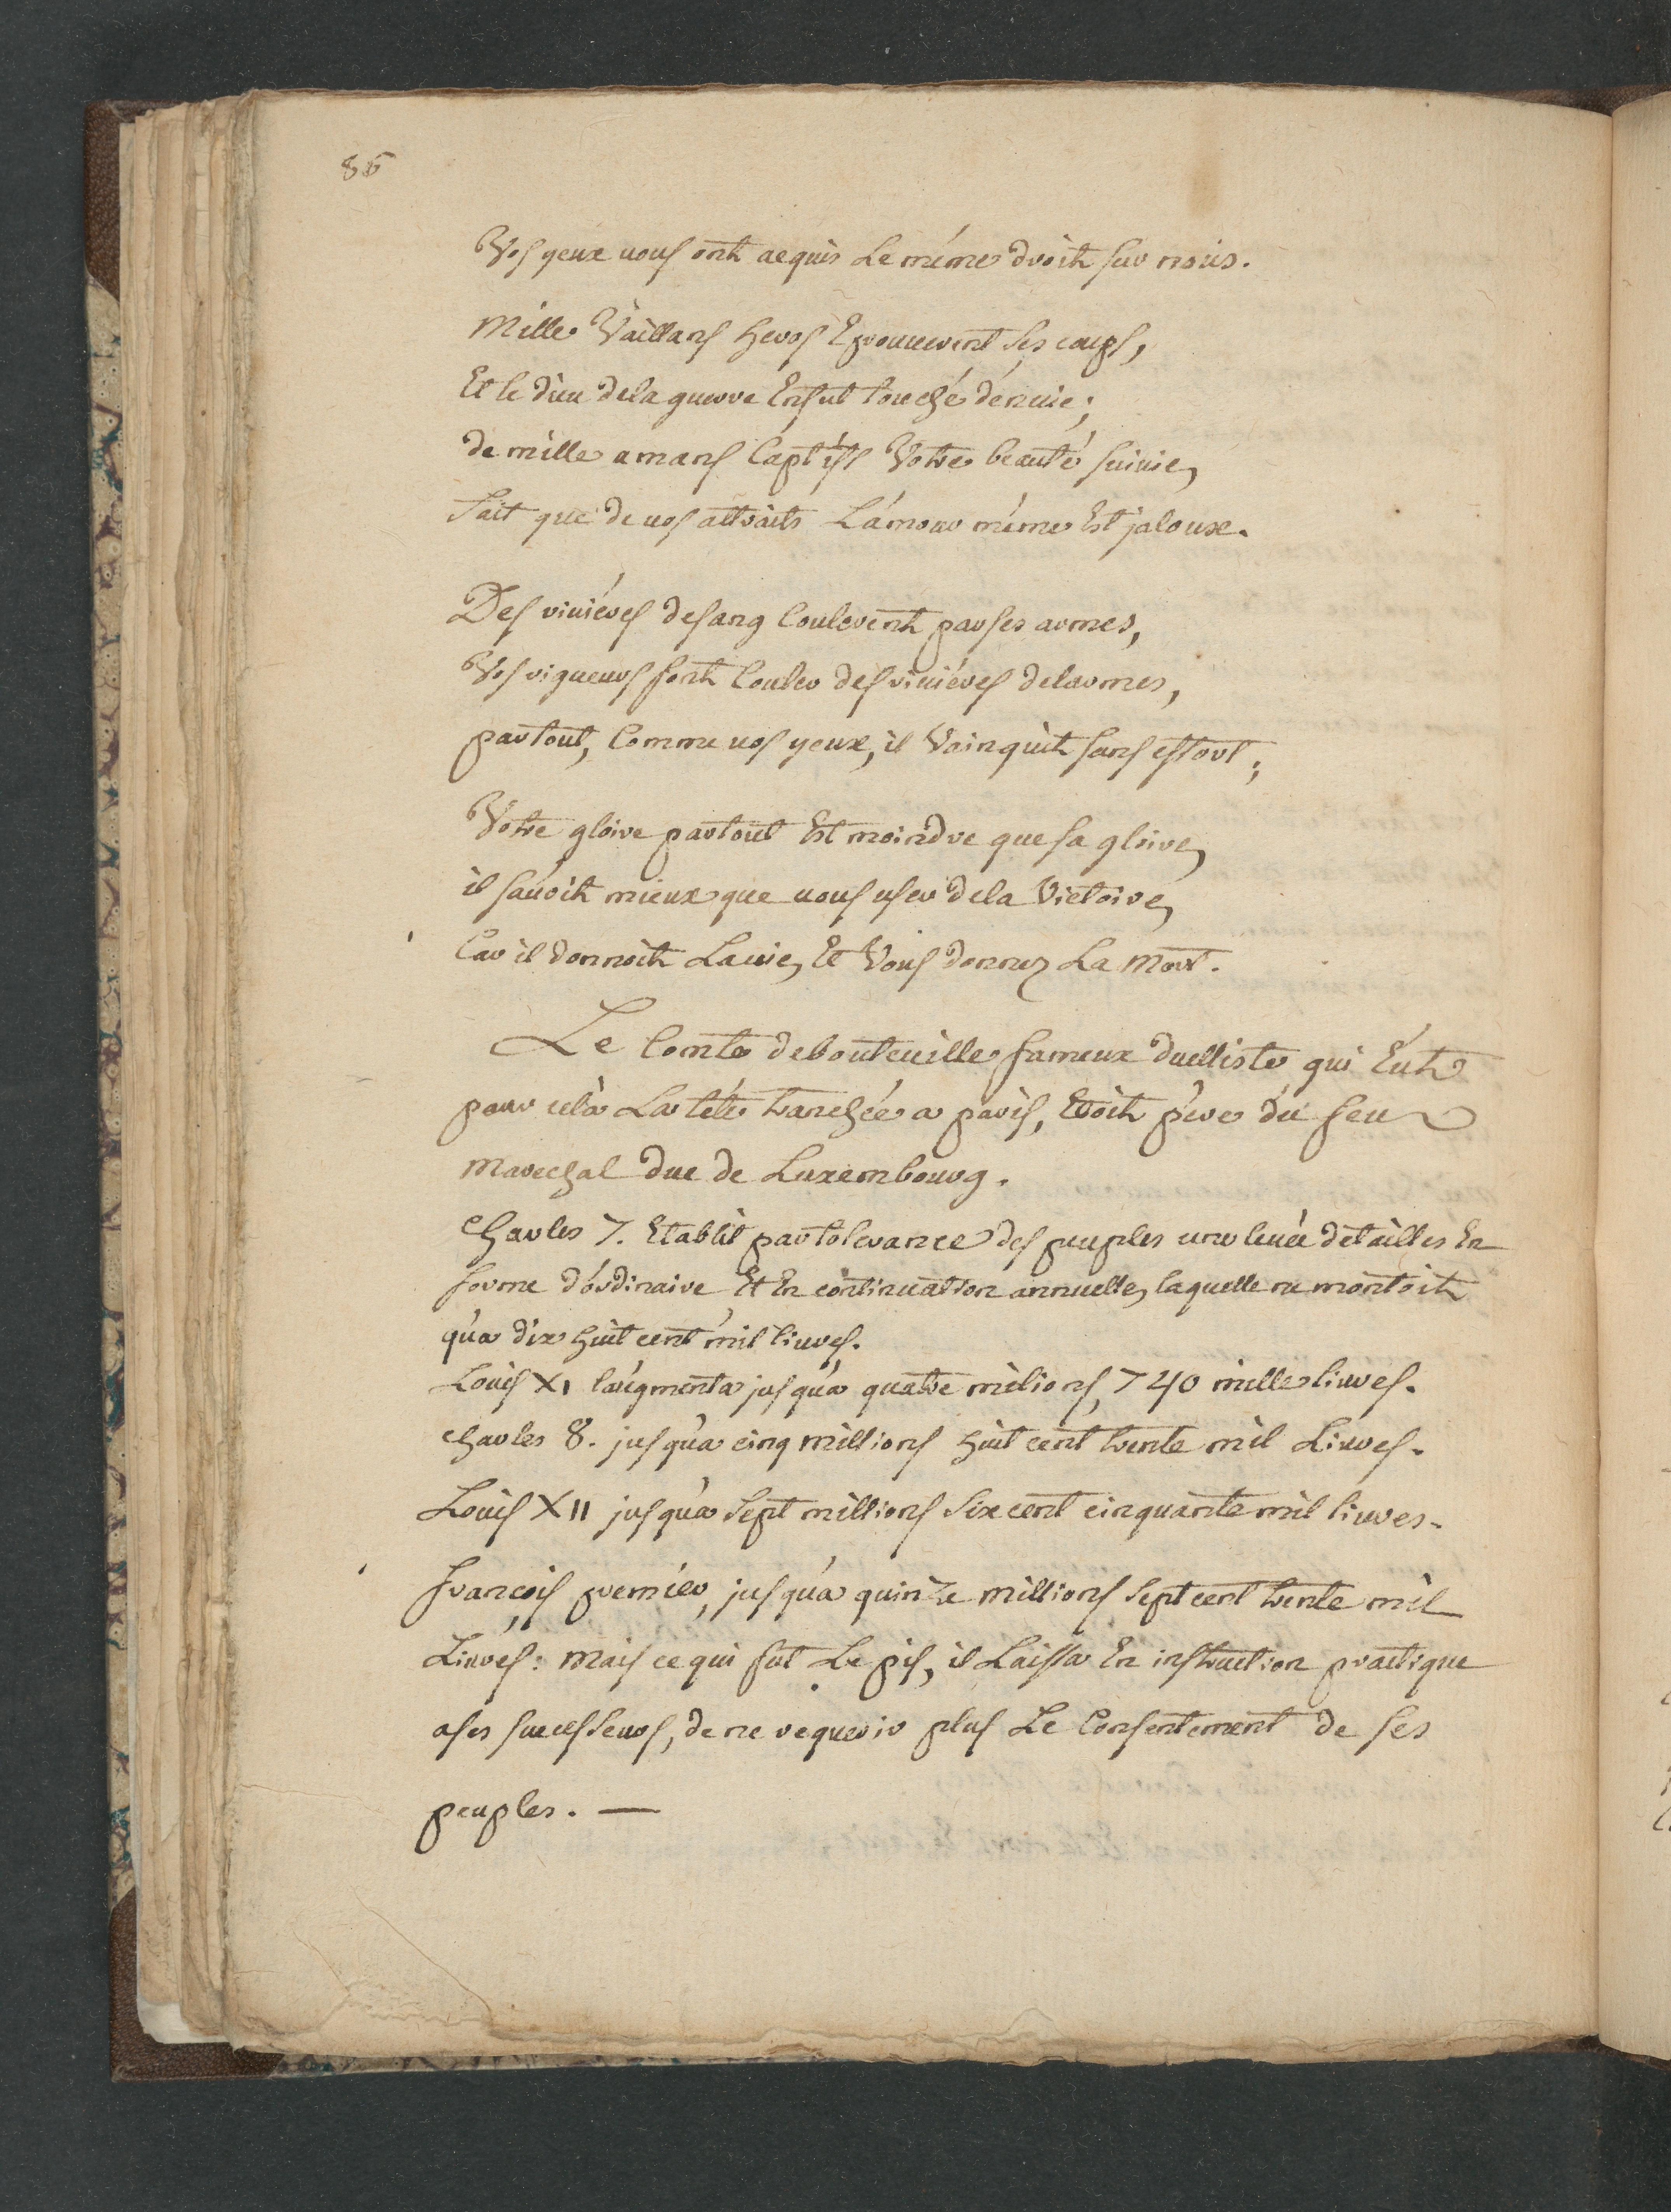 86
Vos yeux vous ont acquis Le même droit sur nous.
Mille Vaillans heros Eprouverent ses coups,
Et le dieu dela guerre En fut touché d'envie;
de mille amans Captifs Votre beauté suivie,
Fait que de vos attraits L'amour même Est jaloux.
Des rivieres de sang Coulerent par ses armes,
Vos rigueurs font Couler des rivieres de larmes,
partout, Comme vos yeux, il Vainquit sans effort;
Votre gloire partout Est moindre que sa gloire,
il savoit mieux que vous user dela Victoire,
Car il donnoit La vie, Et Vous donnez La Mort.
Le Comte de bouteville fameux duelliste qui Eut
pour cela La tête tranchée a paris, Etoit pere du feu
Marechal duc de Luxembourg.
Charles 7. Etablit par tolerance des peuples une levée de tailles En
forme d'ordinaire Et En continuation annuelle, laquelle ne montoit
qu'a dix huit cent mil livres.
Louis XI l'augmenta jusqu'a quatre milions, 740 mille livres.
charles 8. jusqu'a cinq millions huit cent trente mil Livres.
Louis XII jusqu'a sept millions six cent cinquante mil livres.
françois premier, jusqu'a quinze millions sept cent trente mil
Livres: Mais ce qui fut Le pis, il Laissa En instruction practique
a ses successeurs, de ne requerir plus Le Consentement de ses
peuples. —